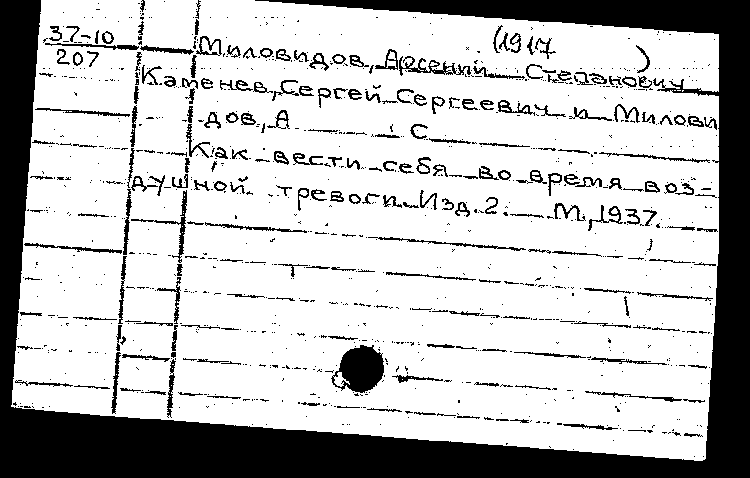 37-10
207
(1917 )
Миловидов, Арсений Степанович
Каменев, Сергей Сергеевич и Милови
дов, А С
Как вести себя во время воз-
душной тревоги. Изд. 2. М., 1937.